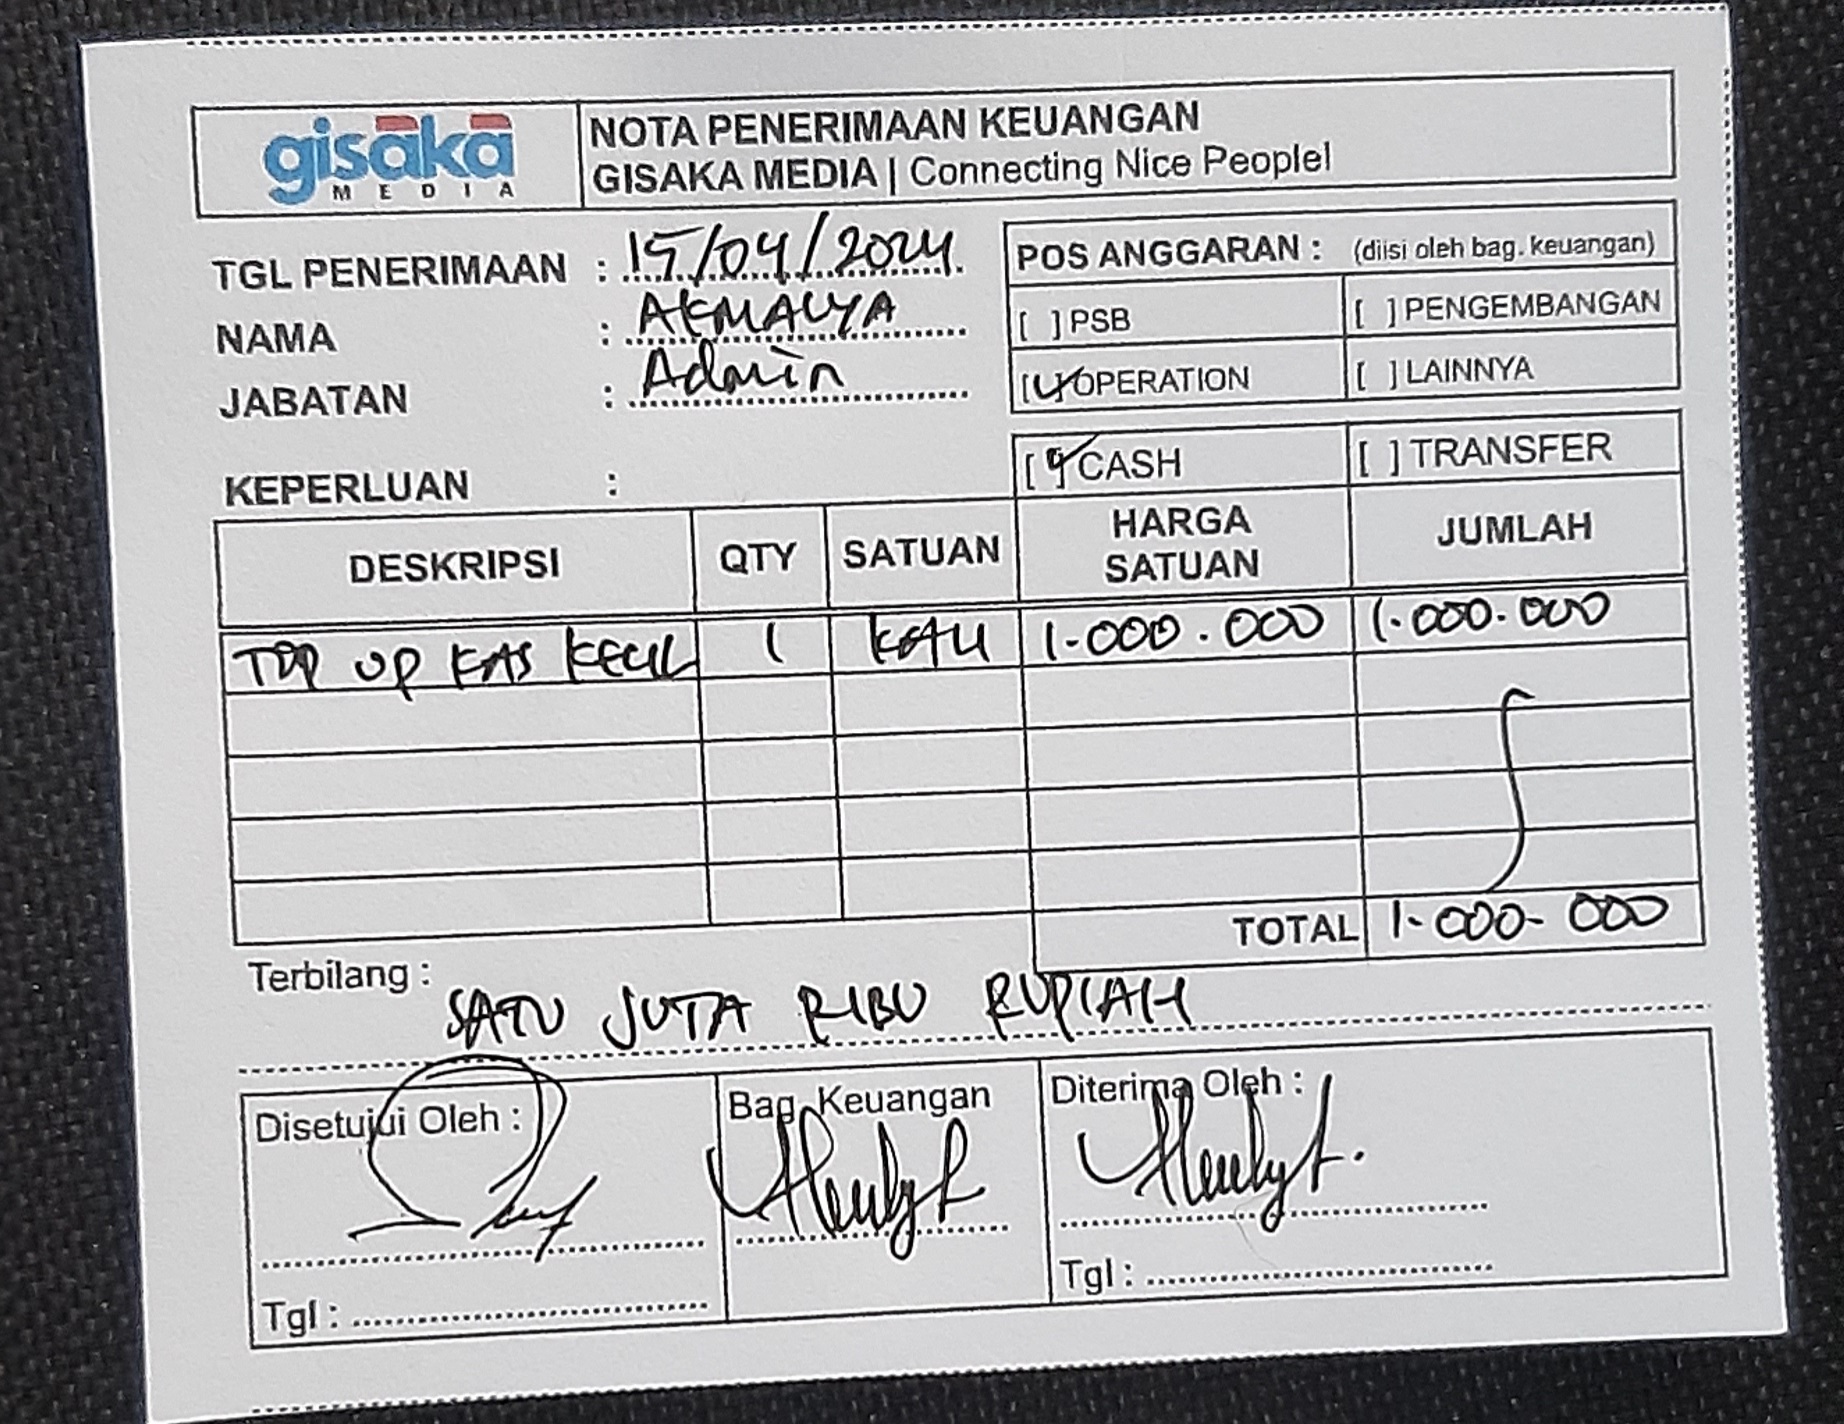 gisaka
MEDIA
NOTA PENERIMAAN KEUANGAN
GISAKA MEDIA | Connecting Nice People!
TGL PENERIMAAN : 15/04/2024
NAMA : AKMALYA
JABATAN : Admin
POS ANGGARAN : (diisi oleh bag. keuangan)
[ ] PSB [ ] PENGEMBANGAN
[✓] OPERATION [ ] LAINNYA
KEPERLUAN :
[✓] CASH [ ] TRANSFER
DESKRIPSI QTY SATUAN HARGA SATUAN JUMLAH
TOP UP KAS KECIL 1 KALI 1.000.000 1.000.000
TOTAL 1.000.000
Terbilang :
SATU JUTA RIBU RUPIAH
Disetujui Oleh : Bag. Keuangan Diterima Oleh :
Tgl : Tgl :